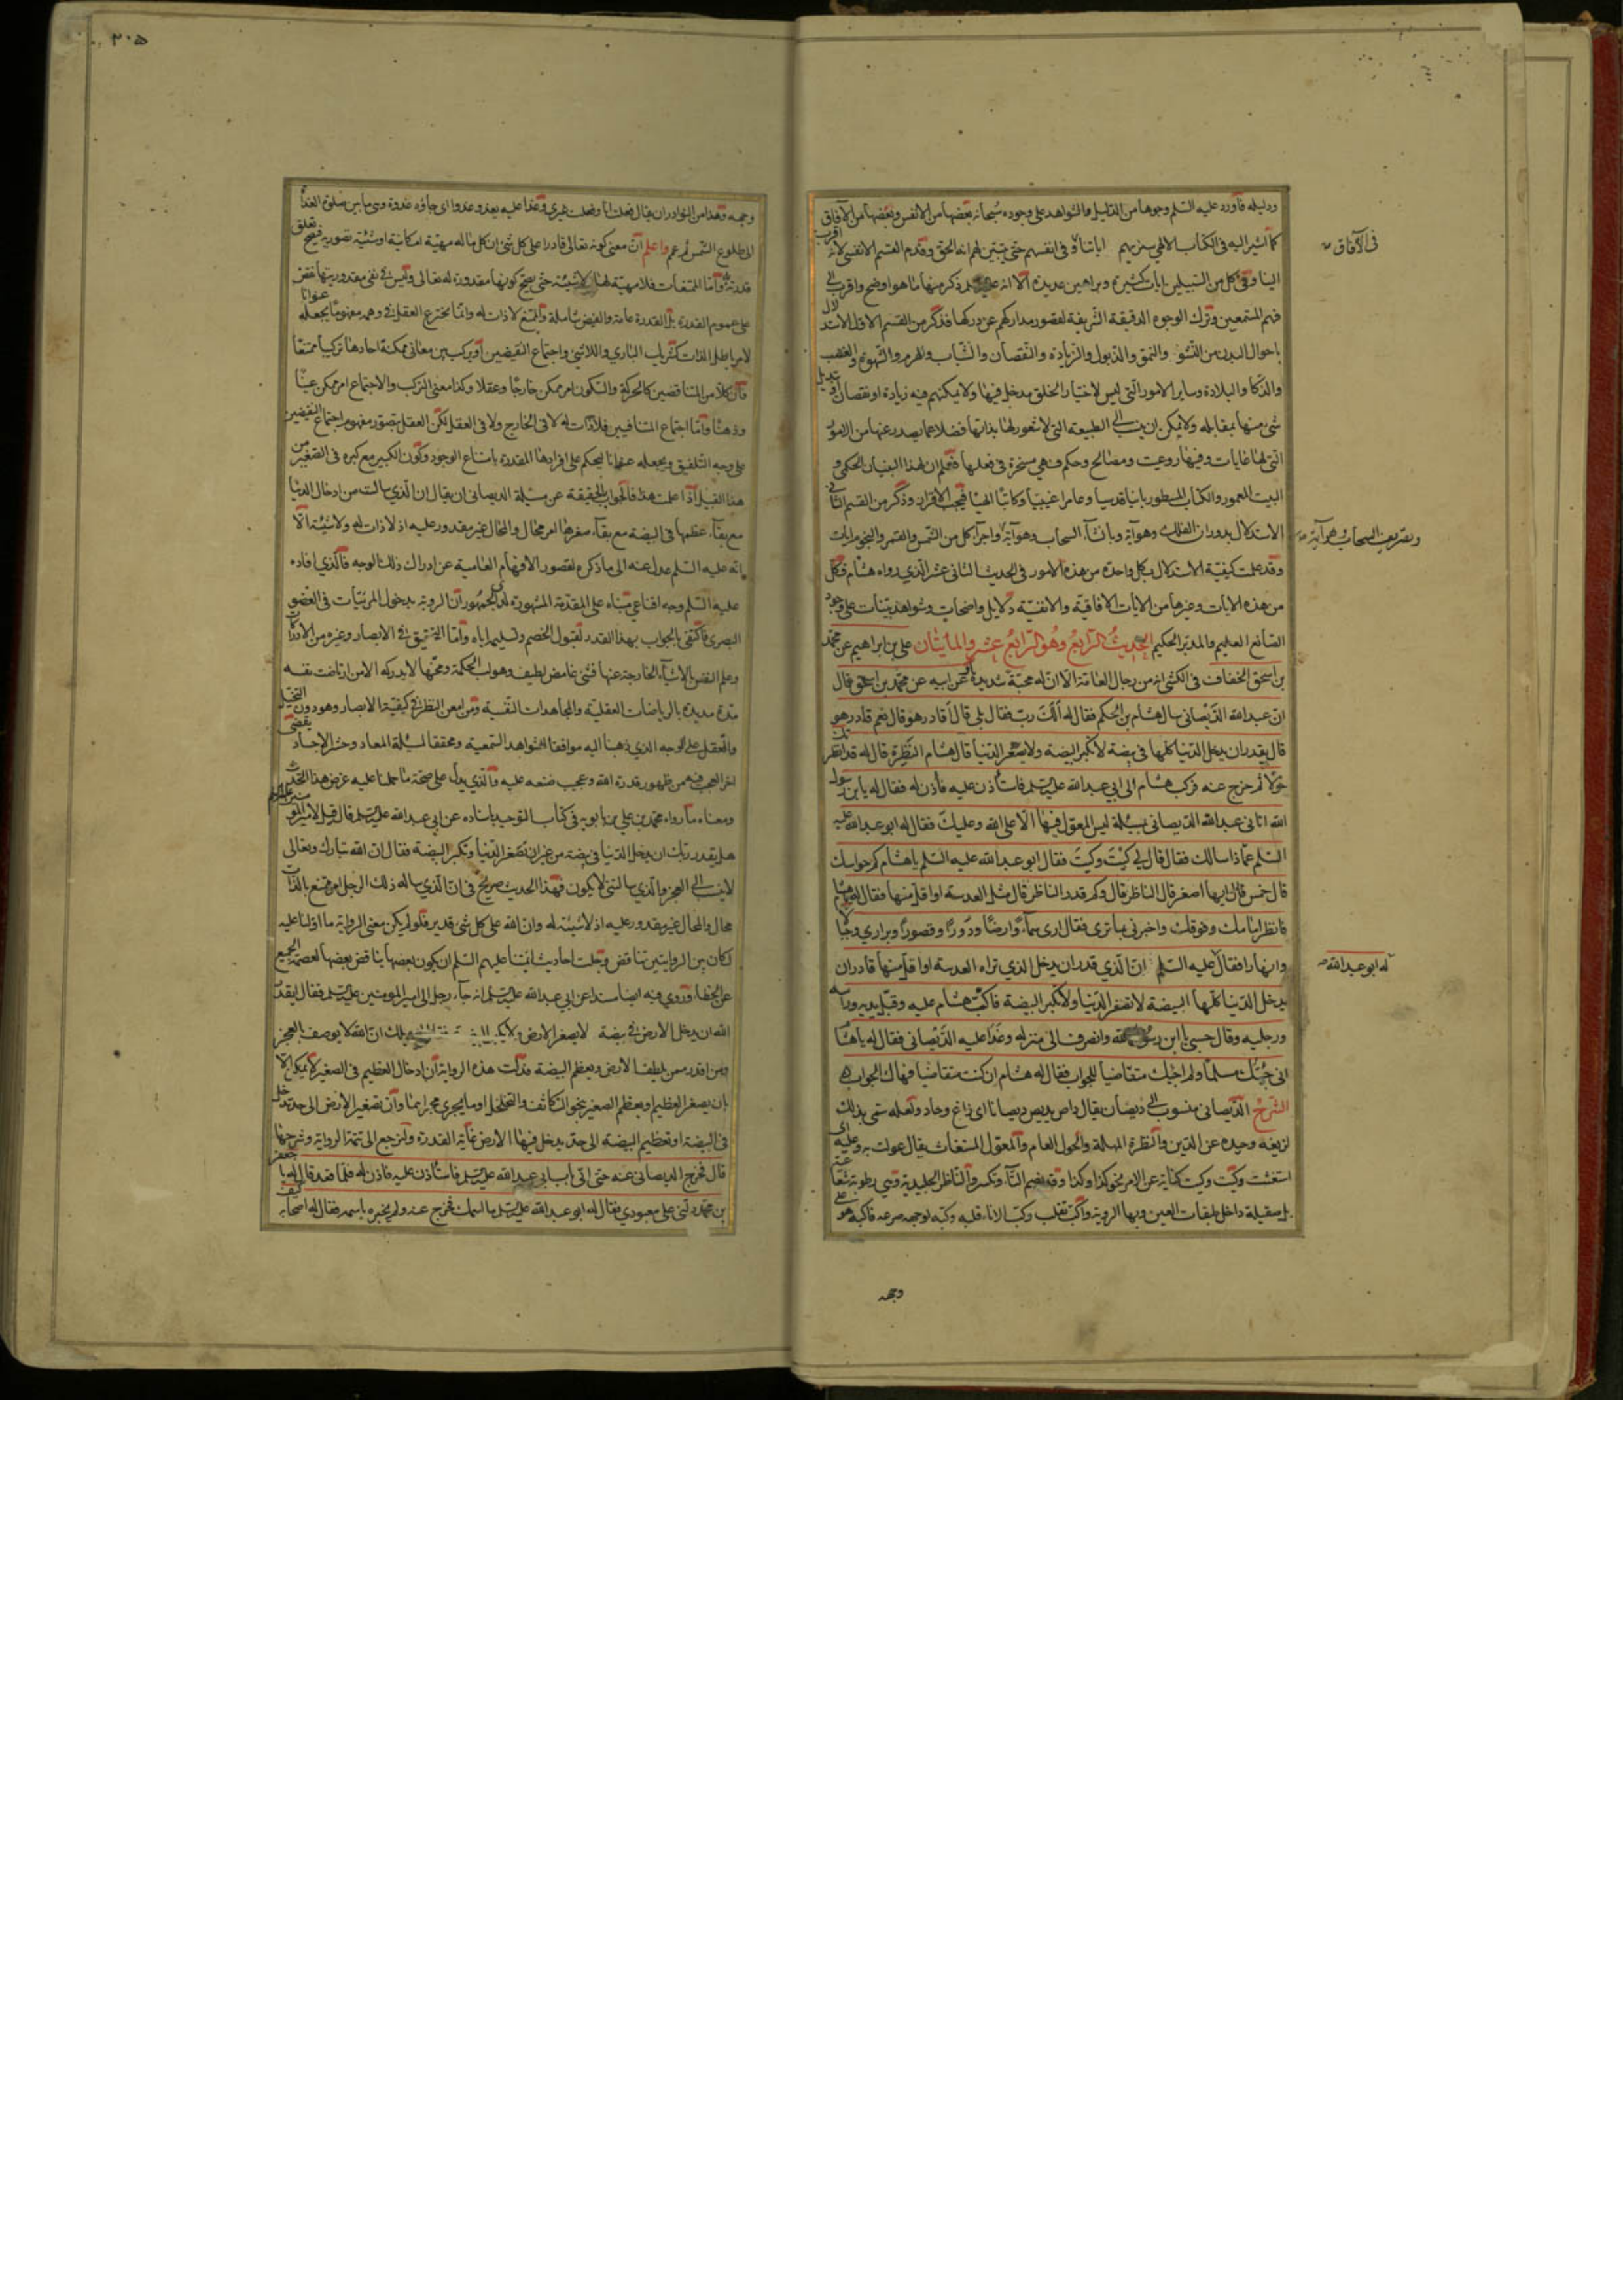 ودليله فأورد عليه السّلم وجوها من الدلايل والشواهد على وجوده سبحانه بعضها من الانفس وبعضها من الآفاق
كما اشير اليه فى الكتاب الالهي سنريهم اياتنا وفى انفسهم حتى يتبيّن لهم انه الحق وقدم القسم الانفسى لانه اقرب
فى الآفاق
الينا وفى كل من السبيلين ايات كثيرة وبراهين عديدة الا انه ذكر منها ما هو اوضح واقرب الى
فهم المستمعين وترك الوجوه الدقيقة الشريفة لقصور مداركهم عن دركها فذكر من القسم الاول الاستدلال
باحوال البدن من النشو والنمو والذبول والزيادة والنقصان والشباب والهرم والشهوة والغضب
والذكا والبلادة وساير الامور التى ليس لاختيار الخلق مدخل فيها ولا يمكنهم فيه زيادة او نقصان او تبديل
شئ منها بمقابله ولا يمكن ان ينسب الى الطبيعة التى لا شعور لها بذاتها فضلا عما يصدر عنها من الامور
التى لها غايات وفيها روعيت ومصالح وحكم فهي مسخرة فى فعلها فعلم ان لهذا البنيان الحكمى و
البيت المعمور والكتاب المسطور بانيا قدسيا وعامرا غيبيا وكاتبا الهيا فيجب الاقرار به وذكر من القسم الثانى
الاستدلال بدوران الفلك وهو آية وبانشاء السحاب وهو آية واجراء كل من الشمس والقمر والنجوم ايات
وتصريف السحاب وهو آية
وقد علمت كيفية الاستدلال بكل واحدة من هذه الامور فى الحديث الثانى عشر الذي رواه هشام فكل
من هذه الايات وغيرها من الايات الآفاقية والانفسية دلايل واضحات وشواهد بينات على وجود
الصانع العليم والمدبر الحكيم الحديث الرابع وهو الرابع عشر والمأيتان على بن ابراهيم عن محمد
بن اسحق الخفاف فى الكشى انه من رجال العامة الا ان له محبة شديدة او عن ابيه عن محمد بن اسحق قال
ان عبد الله الديصانى سال هشام بن الحكم فقال له ألك ربّ فقال بلى قال أقادر هو قال نعم قادر هو
قال يقدر ان يدخل الدنيا كلها فى بيضة لا تكبر البيضة ولا يصغر الدنيا قال هشام النظرة قال له قد انظرتك
حولا ثم خرج عنه فركب هشام الى ابي عبد الله عليه السلم فاستأذن عليه فأذن له فقال له يابن رسول
الله اتانى عبد الله الديصانى بمسئلة ليس المعول فيها الا على الله وعليك فقال له ابو عبد الله عليه
السّلم عمّا ذا سالك فقال قال لى كيت وكيت فقال ابو عبد الله عليه السّلم يا هشام كم حواسك
قال خمس قال ايها اصغر قال الناظر قال وكم قدر الناظر قال مثل العدسة او اقل منها فقال له يا هشام
فانظر امامك وفوقك واخبرنى بما ترى فقال ارى سماء وارضا ودورا وقصورا وبراري وجبالا
وانهارا فقال عليه السّلم ان الذي قدر ان يدخل الذي تراه العدسة او اقل منها قادر ان
له ابو عبد الله
يدخل الدنيا كلها البيضة لا تصغر الدنيا ولا تكبر البيضة فاكبّ هشام عليه وقبّل يديه وراسه
ورجليه وقال حسبى يا ابن رسول الله وانصرف الى منزله وغدا عليه الدّيصانى فقال له يا هشام
انى جئتك مسلّما ولم اجئك متقاضيا للجواب فقال له هشام ان كنت متقاضيا فهاك الجواب
الشرح الدّيصانى منسوب الى ديصان يقال داص يديص ديصانا اى زاغ وحاد ولعله سمى بذلك
لزيغه وحيده عن الدين والنظرة المهلة والحول العام والمعول المستغاث يقال عولت به وعليه اى
استغثت وكيت وكيت كناية عن الامر نحو كذا وكذا وقد يضم التاء وتكسر والناظر الجليدية وهى رطوبة شفافة
صقيلة داخل طبقات العين وبها الروية واكب تقلب وكبّ الاناء قلبه وكبّه لوجهه صرعه فاكب هو على
وجهه
٣٠٥
وجهه وهذا من النوادر ان يقال فعلت انا وفعلت غيرى وغدا عليه يغدو غدوا اى جاؤه غدوة وهى ما بين صلوة الغداة
الى طلوع الشمس ثم عم واعلم ان معنى كونه تعالى قادرا على كل شئ ان كل ما له مهية امكانية او شيئية تصورية فيصح تعلق
قدرته به وامّا الممتنعات فلا مهية لها ولا شيئية حتى يصح كونها مقدورة له تعالى وليس فى نفى مقدوريتها نقض
على عموم القدرة بل القدرة عامة والفيض شاملة والممتنع لا ذات له وانما يخترع العقل فى وهمه مفهوما يجعله عنوانا
لامر باطل الذات كشريك الباري واللاشئ واجتماع النقيضين او يركب بين معانى ممكنة احادها تركيبا ممتنعا
فان كلا من المتناقضين كالحركة والسكون امر ممكن خارجا وعقلا وكذا معنى التركب والاجتماع امر ممكن عينا
وذهنا وامّا اجتماع المتنافيين فلا ذات له لا فى الخارج ولا فى العقل لكن العقل يتصور مفهوم اجتماع النقيضين
على وجه التلفيق ويجعله عنوانا ليحكم على افرادها المقدرة بامتناع الوجود وكون الكبير مع كبره فى الصغير من
هذا القبيل اذا علمت هذا فالجواب بالحقيقة عن مسئلة الديصانى ان يقال ان الذي سالت من ادخال الدنيا
مع بقاء عظمها فى البيضة مع بقاء صغرها امر محال والمحال غير مقدور عليه اذ لا ذات له ولا شيئية الا
انه عليه السّلم عدل عنه الى ما ذكره لقصور الافهام العامية عن ادراك ذلك الوجه فالذي افاده
عليه السّلم وجه اقناعى مبناه على المقدمة المشهورة لدى الجمهور ان الروية بدخول المرئيات فى العضو
البصرى فاكتفى بالجواب بهذا القدر لقبول الخصم وتسليمه اياه وامّا التحقيق فى الابصار وغيره من الادراكات
وعلم النفس بالاشياء الخارجة عنها فشئ غامض لطيف وهو لب الحكمة ومخها لا يدركه الا من ارتاضت نفسه
مدة مديدة بالرياضات العقلية والمجاهدات النفسية ومن امعن النظر فى كيفية الابصار وهو دون التخيل
والتعقل على الوجه الذي ذهبنا اليه موافقا للشواهد السمعية ومحققا لمسئلة المعاد وحشر الاجساد يقضى
اخر العجب فيهم من ظهور قدرة الله وعجيب صنعه عليه والذي يدل على صحة ما حملنا عليه غرض هذا الحديث
ومعناه ما رواه محمد بن على بن بابويه فى كتاب التوحيد باسناده عن ابى عبد الله عليه السلم قال قيل لامير المؤمنين عليه السلم
هل يقدر ربك ان يدخل الدنيا فى بيضة من غير ان تصغر الدنيا وتكبر البيضة فقال ان الله تبارك وتعالى
لا ينسب الى العجز والذي سالتنى لا يكون فهذا الحديث صريح فى ان الذي ساله ذلك الرجل امر ممتنع بالذات
محال والمحال غير مقدور عليه اذ لا شيئية له وان الله على كل شئ قدير فلو لم يكن معنى الرواية ما اولنا عليه
لكان بين الروايتين تناقض وجلت احاديث ائمتنا عليهم السّلم ان يكون بعضها يناقض بعضها لعصمة الجميع
عن الخطاء وروي فيه ايضا مسندا عن ابي عبد الله عليه السلم انه جاء رجل الى امير المومنين عليه السلم فقال ايقدر
الله ان يدخل الارض فى بيضة لا يصغر الارض ولا يكبر البيضة ويلك ان الله لا يوصف بالعجز
ومن اقدر ممن يلطف الارض ويعظم البيضة فدلت هذه الرواية ان ادخال العظيم فى الصغير لا يمكن الا
بان يصغر العظيم او يعظم الصغير بنحو التكاثف والتخلخل او ما يجري مجراهما وان تصغير الارض الى حد يدخل
فى البيضة او تعظيم البيضة الى حد يدخل فيها الارض غاية القدرة ولنرجع الى تتمة الرواية وشرحها
قال فخرج الديصانى عنه حتى اتى باب ابى عبد الله عليه السلم فاستأذن عليه فأذن له فلما قعد قال له يا جعفر
بن محمد دلنى على معبودي فقال له ابو عبد الله عليه السلم ما اسمك فخرج عنه ولم يخبره باسمه فقال له اصحابه كيف